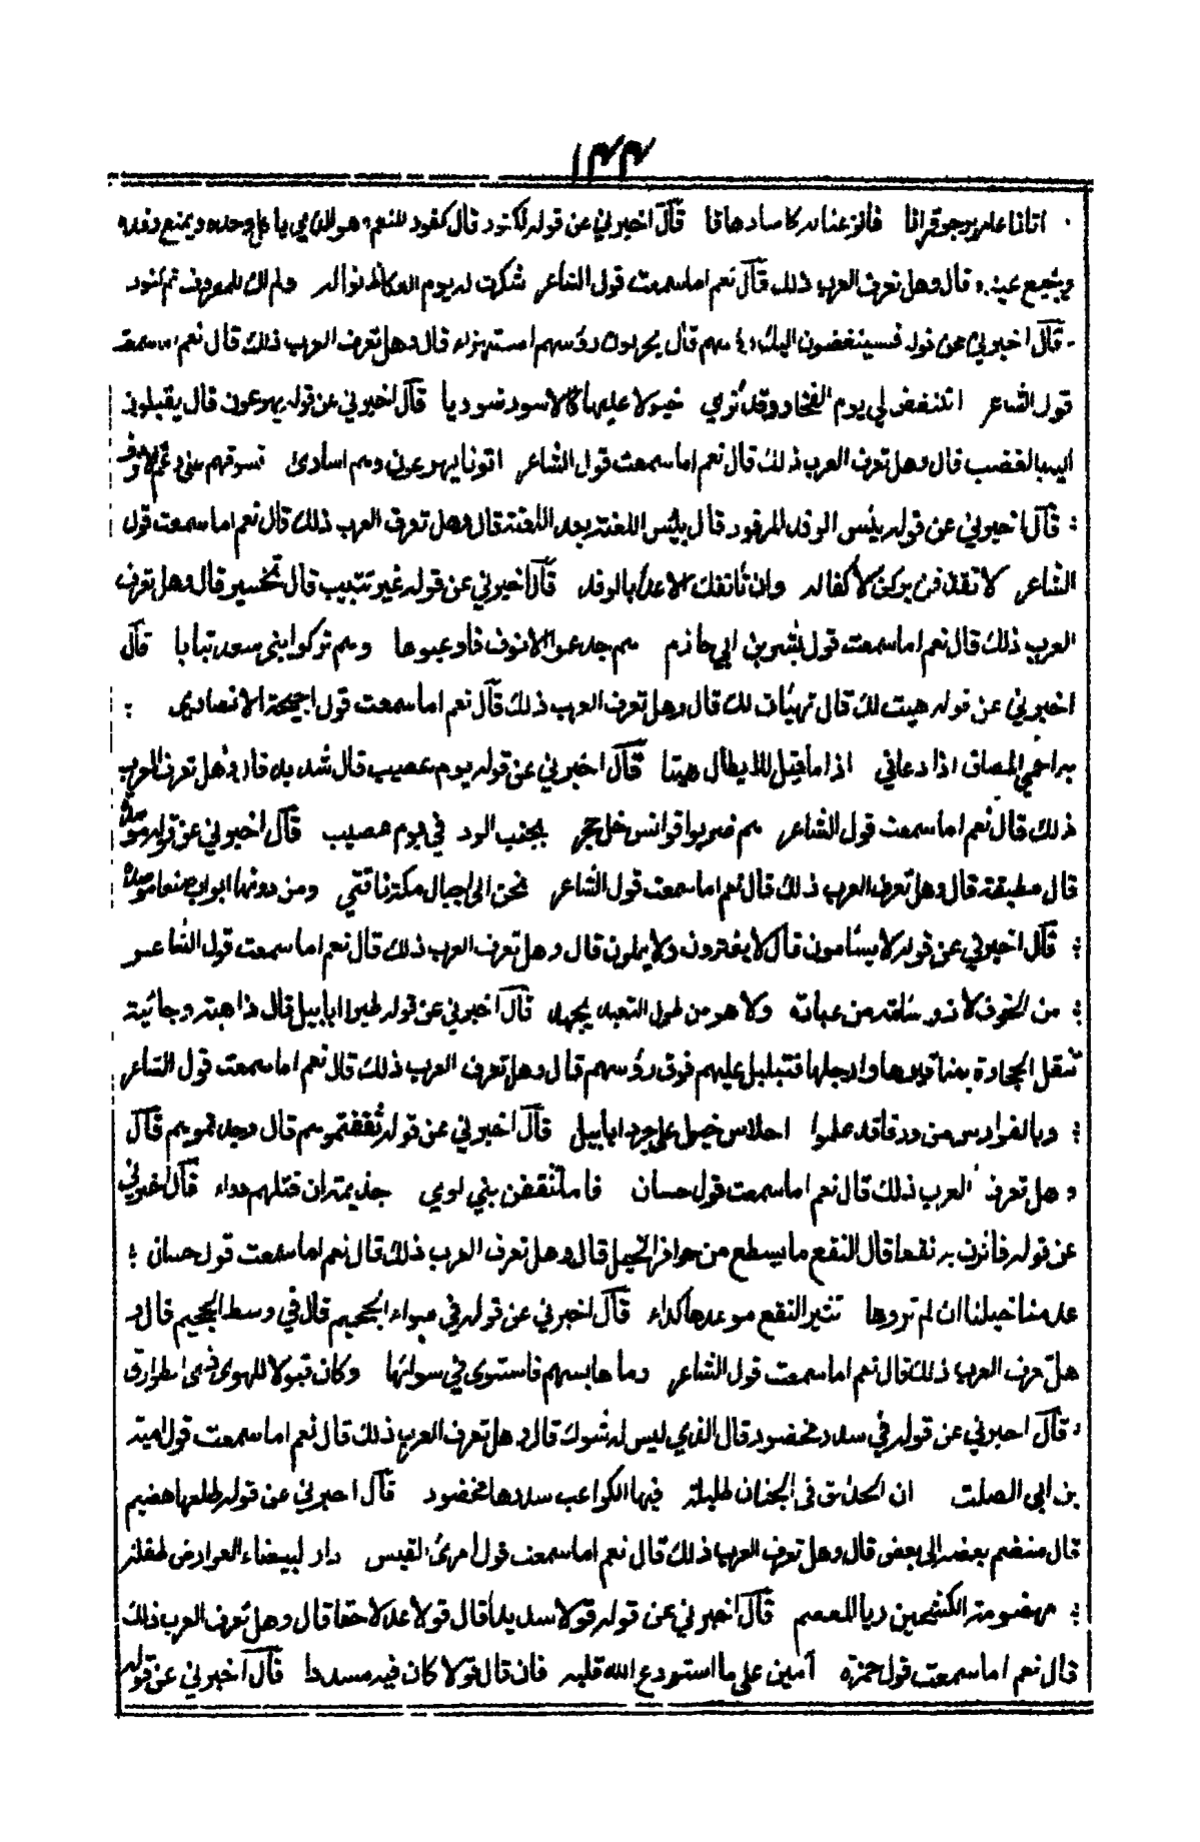 ١٤٤
اتانا عامر يرجو قرانا فاترعنا له كاسا دهاقا قال اخبرني عن قوله لكنود قال كفور للنعم وهو الذي ياكل وحده ويمنع رفده
ويجيع عبده قال وهل تعرف العرب ذلك قال نعم اما سمعت قول الشاعر شكرت له يوم العكاظ نواله ولم اك للمعروف ثم كنود
قال اخبرني عن قوله فسينغضون اليك رءوسهم قال يحركون رؤسهم استهزاء قال وهل تعرف العرب ذلك قال نعم اما سمعت
قول الشاعر اتنغض لي يوم الفخار وقد ترى خيولا عليها كالاسود ضواريا قال اخبرني عن قوله يهرعون قال يقبلون
اليه بالغضب قال وهل تعرف العرب ذلك قال نعم اما سمعت قول الشاعر اتونا يهرعون وهم اسارى نسوقهم على رغم الانوف
قال اخبرني عن قوله بئس الرفد المرفود قال بئس اللعنة بعد اللعنة قال وهل تعرف العرب ذلك قال نعم اما سمعت قول
الشاعر لا تقذفن بركن لا كفاء له وان تاثفك الاعداء بالرفد قال اخبرني عن قوله غير تتبيب قال تخسير قال وهل تعرف
العرب ذلك قال نعم اما سمعت قول بشر بن ابي حازم هم جدعوا الانوف فاوعبوها وهم تركوا بني سعد تبابا قال
اخبرني عن قوله هيت لك قال تهيأت لك قال وهل تعرف العرب ذلك قال نعم اما سمعت قول احيحة الانصاري
به احمي المصاف اذا دعاني اذا ما قيل للابطال هيتا قال اخبرني عن قوله يوم عصيب قال شديد قال وهل تعرف العرب
ذلك قال نعم اما سمعت قول الشاعر هم ضربوا قوانس خيل حجر بجنب الرد في يوم عصيب قال اخبرني عن قوله موصدة
قال مطبقة قال وهل تعرف العرب ذلك قال نعم اما سمعت قول الشاعر تحن الى اجبال مكة ناقتي ومن دونها ابواب صنعا موصدة
قال اخبرني عن قوله لا يسأمون قال لا يفترون ولا يملون قال وهل تعرف العرب ذلك قال نعم اما سمعت قول الشاعر
من الخوف لا ذو سأمة من عبادة ولا هو من طول التعبد يجهد قال اخبرني عن قوله طيرا ابابيل قال ذاهبة وجائية
تنقل الحجارة بمناقيرها وارجلها فتبلبل عليهم فوق رؤسهم قال وهل تعرف العرب ذلك قال نعم اما سمعت قول الشاعر
وبالفوارس من ورقا قد علموا احلاس خيل على جرد ابابيل قال اخبرني عن قوله ثقفتموهم قال وجدتموهم قال
وهل تعرف العرب ذلك قال نعم اما سمعت قول حسان فاما تثقفن بني لوي جذيمة ان قتلهم دواء قال اخبرني
عن قوله فاثرن به نقعا قال النقع ما يسطع من حوافر الخيل قال وهل تعرف العرب ذلك قال نعم اما سمعت قول حسان
عدمنا خيلنا ان لم تروها تثير النقع موعدها كداء قال اخبرني عن قوله في سواء الجحيم قال في وسط الجحيم قال و
هل تعرف العرب ذلك قال نعم اما سمعت قول الشاعر رماها بسهم فاستوى في سوائها وكان قبولا للهوى ذي الطوارق
قال اخبرني عن قوله في سدر مخضود قال الذي ليس له شوك قال وهل تعرف العرب ذلك قال نعم اما سمعت قول امية
بن ابي الصلت ان الحدائق في الجنان ظليلة فيها الكواعب سدرها مخضود قال اخبرني عن قوله طلعها هضيم
قال منضم بعضه الى بعض قال وهل تعرف العرب ذلك قال نعم اما سمعت قول امرئ القيس دار لبيضاء العوارض طفلة
مهضومة الكشحين ريا المعصم قال اخبرني عن قوله قولا سديدا قال قولا عدلا حقا قال وهل تعرف العرب ذلك
قال نعم اما سمعت قول حمزة امين على ما استودع الله قلبه فان قال قولا كان فيه مسددا قال اخبرني عن قوله